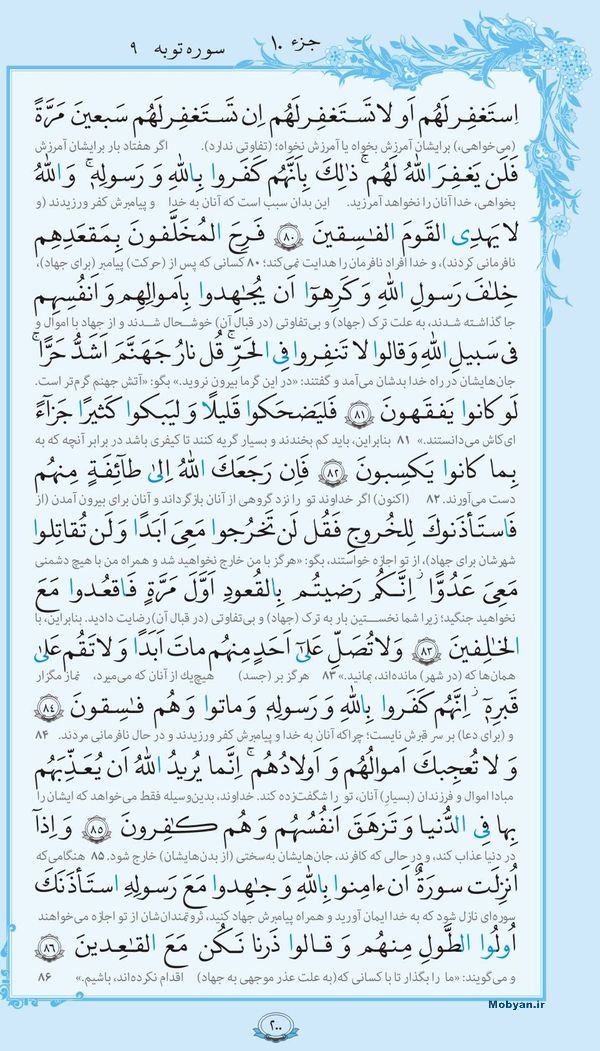 جزء ۱۰ سوره توبه ۹
اِستَغفِرلَهُم اَو لا تَستَغفِرلَهُم اِن تَستَغفِرلَهُم سَبعینَ مَرَّةً
(می‌خواهی،) برایشان آمرزش بخواه یا آمرزش نخواه؛ (تفاوتی ندارد). اگر هفتاد بار برایشان آمرزش
فَلَن یَغفِرَ اللهُ لَهُم ۚ ذٰلِكَ بِاَنَّهُم كَفَروا بِاللهِ وَ رَسولِهٖ ۗ وَ اللهُ
بخواهی، خدا آنان را نخواهد آمرزید. این بدان سبب است که آنان به خدا و پیامبرش کفر ورزیدند (و
لا یَهدِی القَومَ الفـٰسِقینَ ۸۰ فَرِحَ المُخَلَّفونَ بِمَقعَدِهِم
نافرمانی کردند)، و خدا افراد نافرمان را هدایت نمی‌کند؛ ۸۰ کسانی که پس از (حرکت) پیامبر (برای جهاد)،
خِلـٰفَ رَسولِ اللهِ وَ كَرِهوٓا اَن یُجـٰهِدوا بِاَموالِهِم وَ اَنفُسِهِم
جا گذاشته شدند، به علت ترک (جهاد) و بی‌تفاوتی (در قبال آن) خوشحال شدند و از جهاد با اموال و
فی سَبیلِ اللهِ وَ قالوا لا تَنفِروا فِی الحَرِّ ۗ قُل نارُ جَهَنَّمَ اَشَدُّ حَرًّا ۚ
جان‌هایشان در راه خدا بدشان می‌آمد و گفتند: «در این گرما بیرون نروید.» بگو: «آتش جهنم گرم‌تر است.
لَو كانوا یَفقَهونَ ۸۱ فَلیَضحَكوا قَلیلًا وَ لیَبكوا كَثیرًا جَزآءً
ای کاش می‌دانستند.» ۸۱ بنابراین، باید کم بخندند و بسیار گریه کنند تا کیفری باشد در برابر آنچه که به
بِما كانوا یَكسِبونَ ۸۲ فَاِن رَجَعَكَ اللهُ اِلیٰ طآئِفَةٍ مِنهُم
دست می‌آورند. ۸۲ (اکنون) اگر خداوند تو را نزد گروهی از آنان بازگرداند و آنان برای بیرون آمدن (از
فَاستَأذَنوكَ لِلخُروجِ فَقُل لَن تَخرُجوا مَعِیَ اَبَدًا وَ لَن تُقاتِلوا
شهرشان برای جهاد)، از تو اجازه خواستند، بگو: «هرگز با من خارج نخواهید شد و همراه من با هیچ دشمنی
مَعِیَ عَدُوًّا ۖ اِنَّكُم رَضیتُم بِالقُعودِ اَوَّلَ مَرَّةٍ فَاقعُدوا مَعَ
نخواهید جنگید؛ زیرا شما نخستین بار به ترک (جهاد) و بی‌تفاوتی (در قبال آن) رضایت دادید. بنابراین، با
الخـٰلِفینَ ۸۳ وَ لا تُصَلِّ عَلیٰٓ اَحَدٍ مِنهُم ماتَ اَبَدًا وَ لا تَقُم عَلیٰ
همان‌ها که (در شهر) مانده‌اند، بمانید.» ۸۳ هرگز بر (جسد) هیچ‌یک از آنان که می‌میرد، نماز مگزار
قَبرِهٖٓ ۖ اِنَّهُم كَفَروا بِاللهِ وَ رَسولِهٖ وَ ماتوا وَ هُم فـٰسِقونَ ۸۴
و (برای دعا) بر سر قبرش نایست؛ چراکه آنان به خدا و پیامبرش کفر ورزیدند و در حال نافرمانی مردند. ۸۴
وَ لا تُعجِبكَ اَموالُهُم وَ اَولادُهُم ۚ اِنَّما یُریدُ اللهُ اَن یُعَذِّبَهُم
مبادا اموال و فرزندان (بسیار) آنان، تو را شگفت‌زده کند. خداوند، بدین‌وسیله فقط می‌خواهد که ایشان را
بِها فِی الدُّنیا وَ تَزهَقَ اَنفُسُهُم وَ هُم كـٰفِرونَ ۸۵ وَ اِذآ
در دنیا عذاب کند، و در حالی که کافرند، جان‌هایشان به‌سختی (از بدن‌هایشان) خارج شود. ۸۵ هنگامی‌که
اُنزِلَت سورَةٌ اَن ءامِنوا بِاللهِ وَ جـٰهِدوا مَعَ رَسولِهِ استَأذَنَكَ
سوره‌ای نازل شود که به خدا ایمان آورید و همراه پیامبرش جهاد کنید، ثروتمندان‌شان از تو اجازه می‌خواهند
اُولُوا الطَّولِ مِنهُم وَ قالوا ذَرنا نَكُن مَعَ القـٰعِدینَ ۸۶
و می‌گویند: «ما را بگذار تا با کسانی که(به علت عذر موجهی به جهاد) اقدام نکرده‌اند، باشیم.» ۸۶
Mobyan.ir
۲۰۰